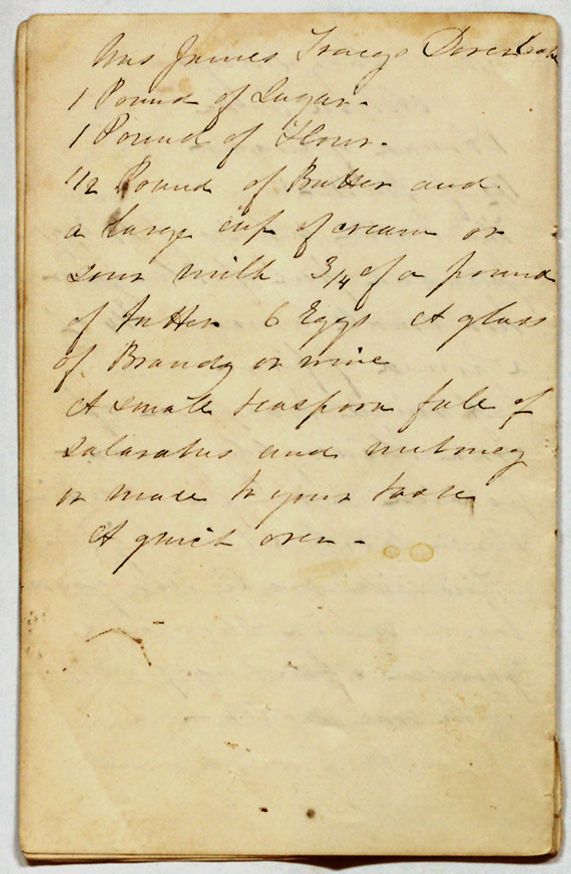 Mrs James Tracys Dover Cake
1 Pound of Sugar.
1 Pound of Flour.
1/2 Pound of Butter and
a large cup of cream or
sour milk 3/4 of a pound
of butter 6 Eggs A glass
of Brandy or wine
A small teaspoon full of
salaratus and nutmeg
or mace to your taste
A quick oven -